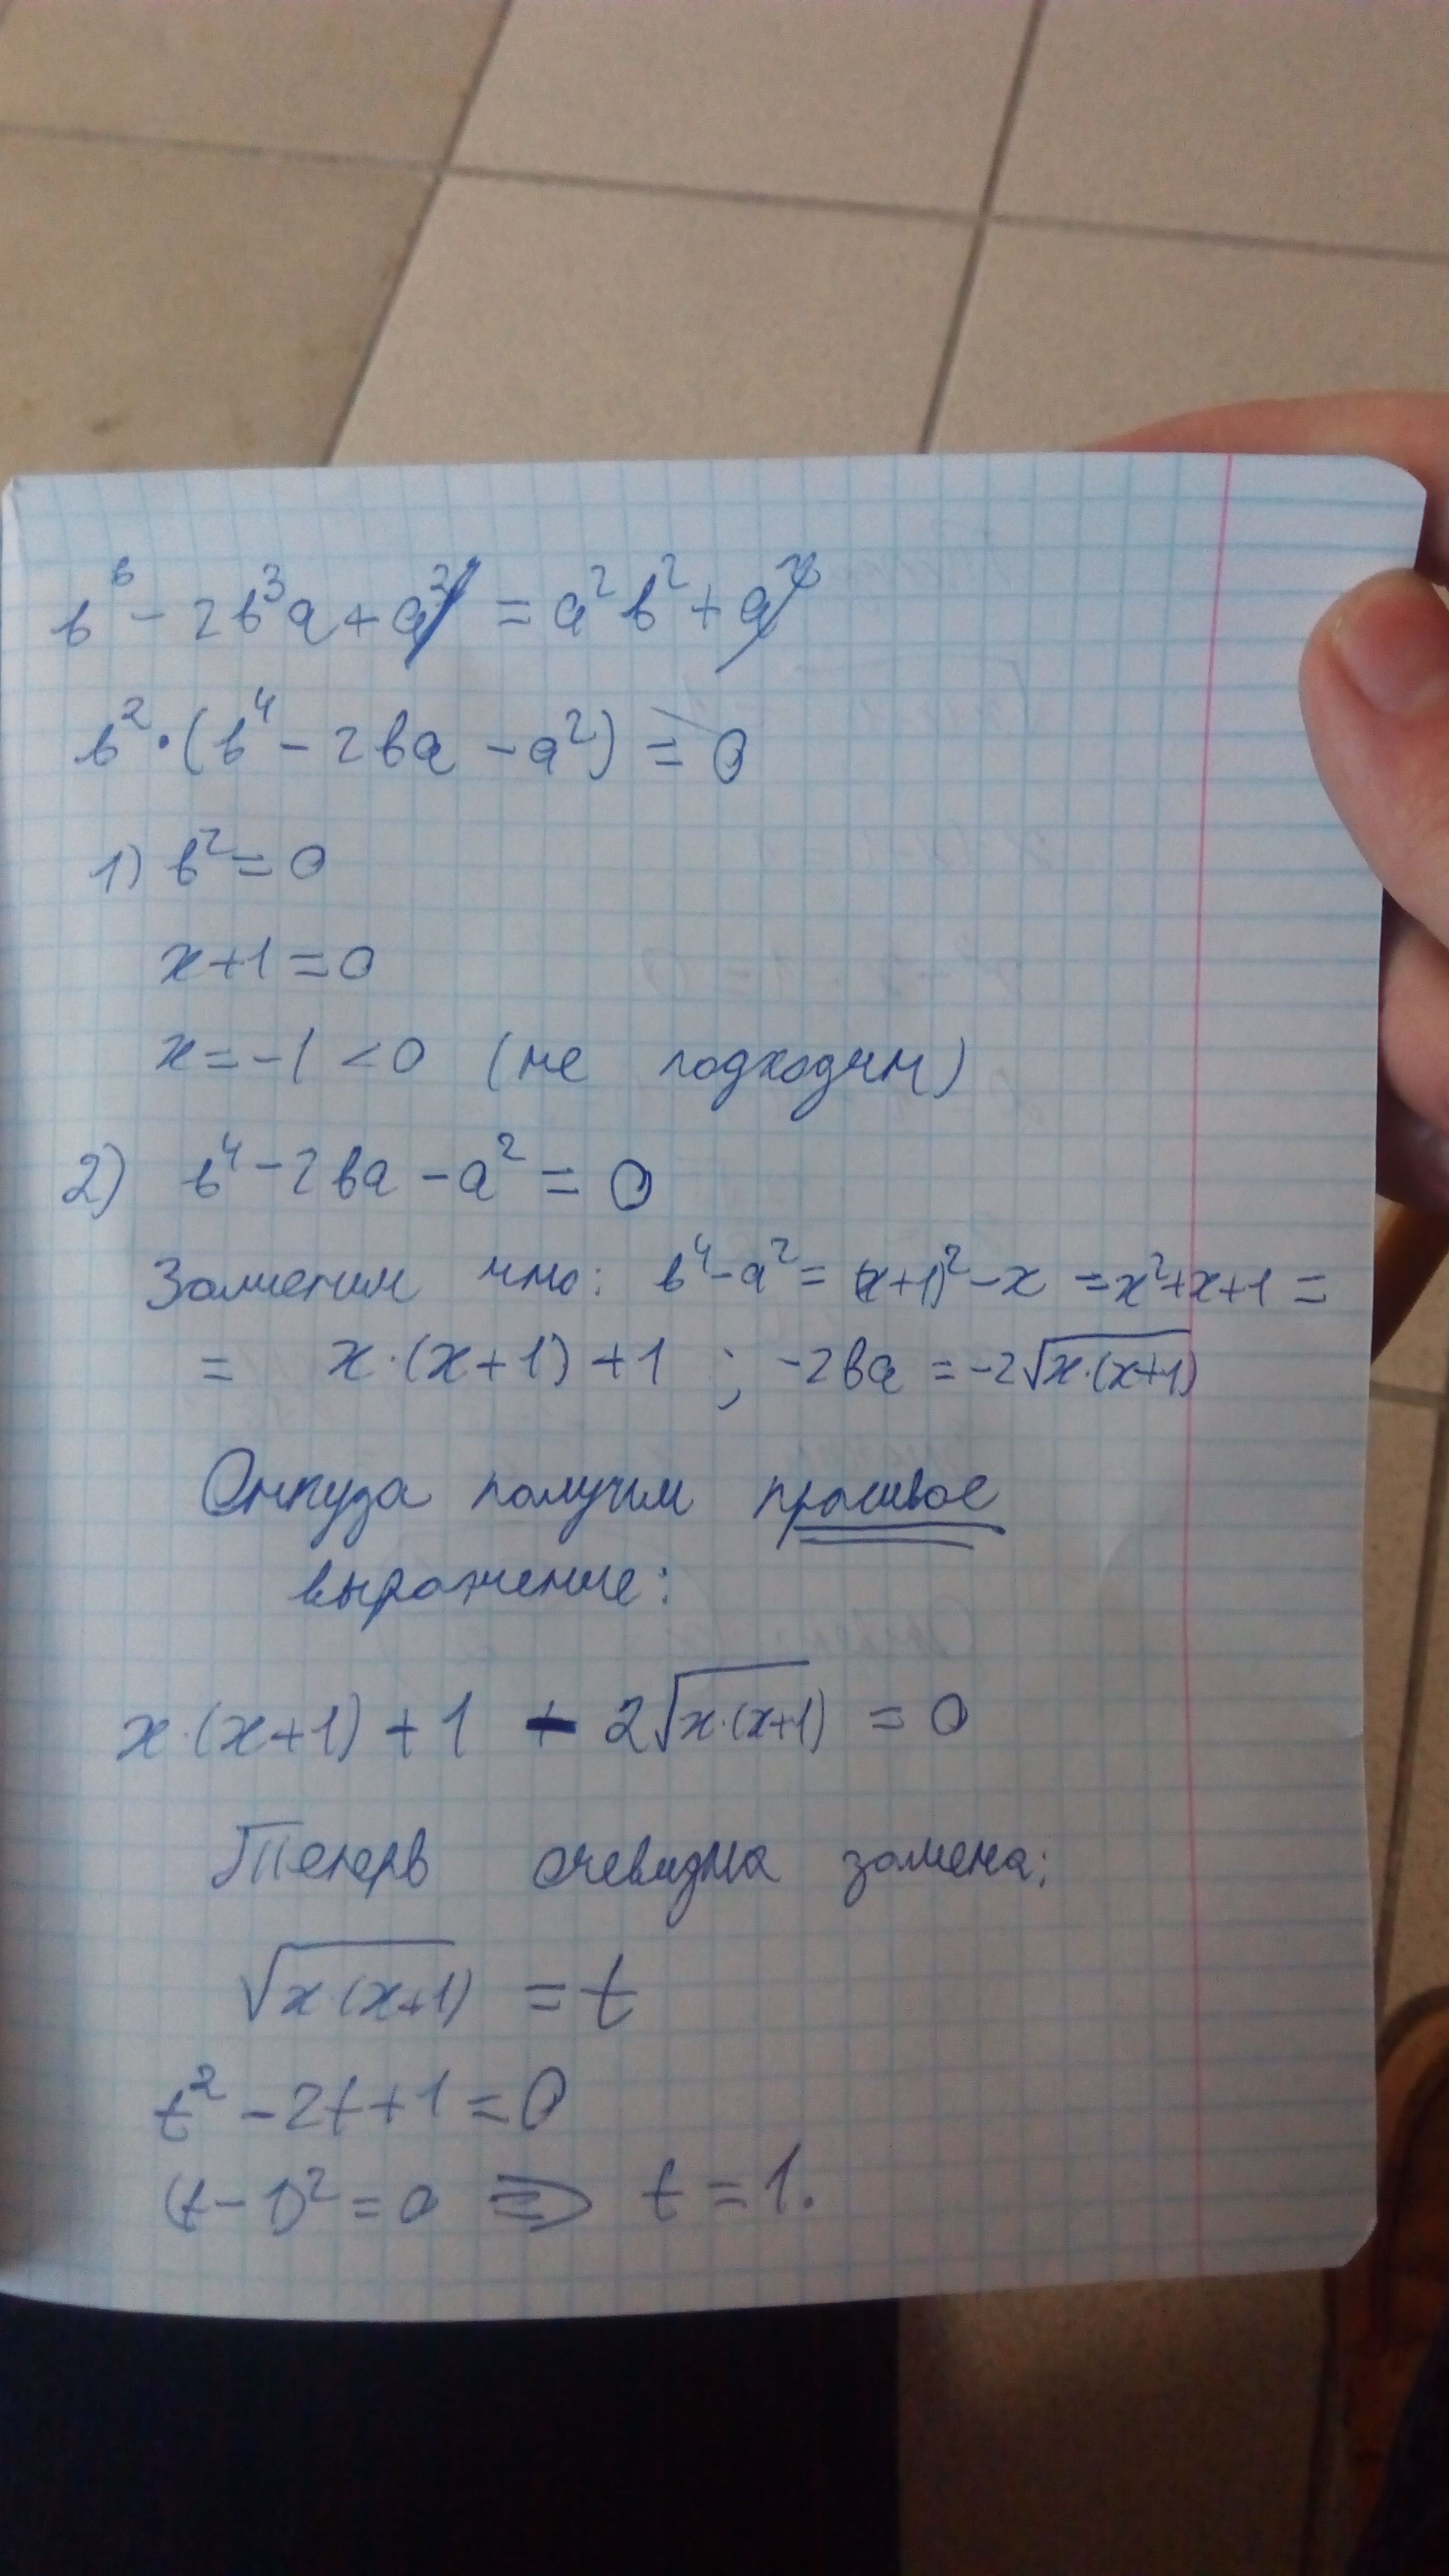 в⁶ - 2в³a + a² = a²в² + a²
в²·(в⁴ - 2вa - a²) = 0
1) в² = 0
x+1=0
x=-1<0 (не подходит)
2) в⁴ - 2вa - a² = 0
Заметим что: в⁴-a² = (x+1)²-x = x²+x+1 =
= x·(x+1)+1 ; -2вa = -2√x·(x+1)
Откуда получим красивое
выражение:
x·(x+1)+1 - 2√x·(x+1) = 0
Теперь очевидна замена:
√x·(x+1) = t
t² - 2t + 1 = 0
(t-1)² = 0 => t = 1.